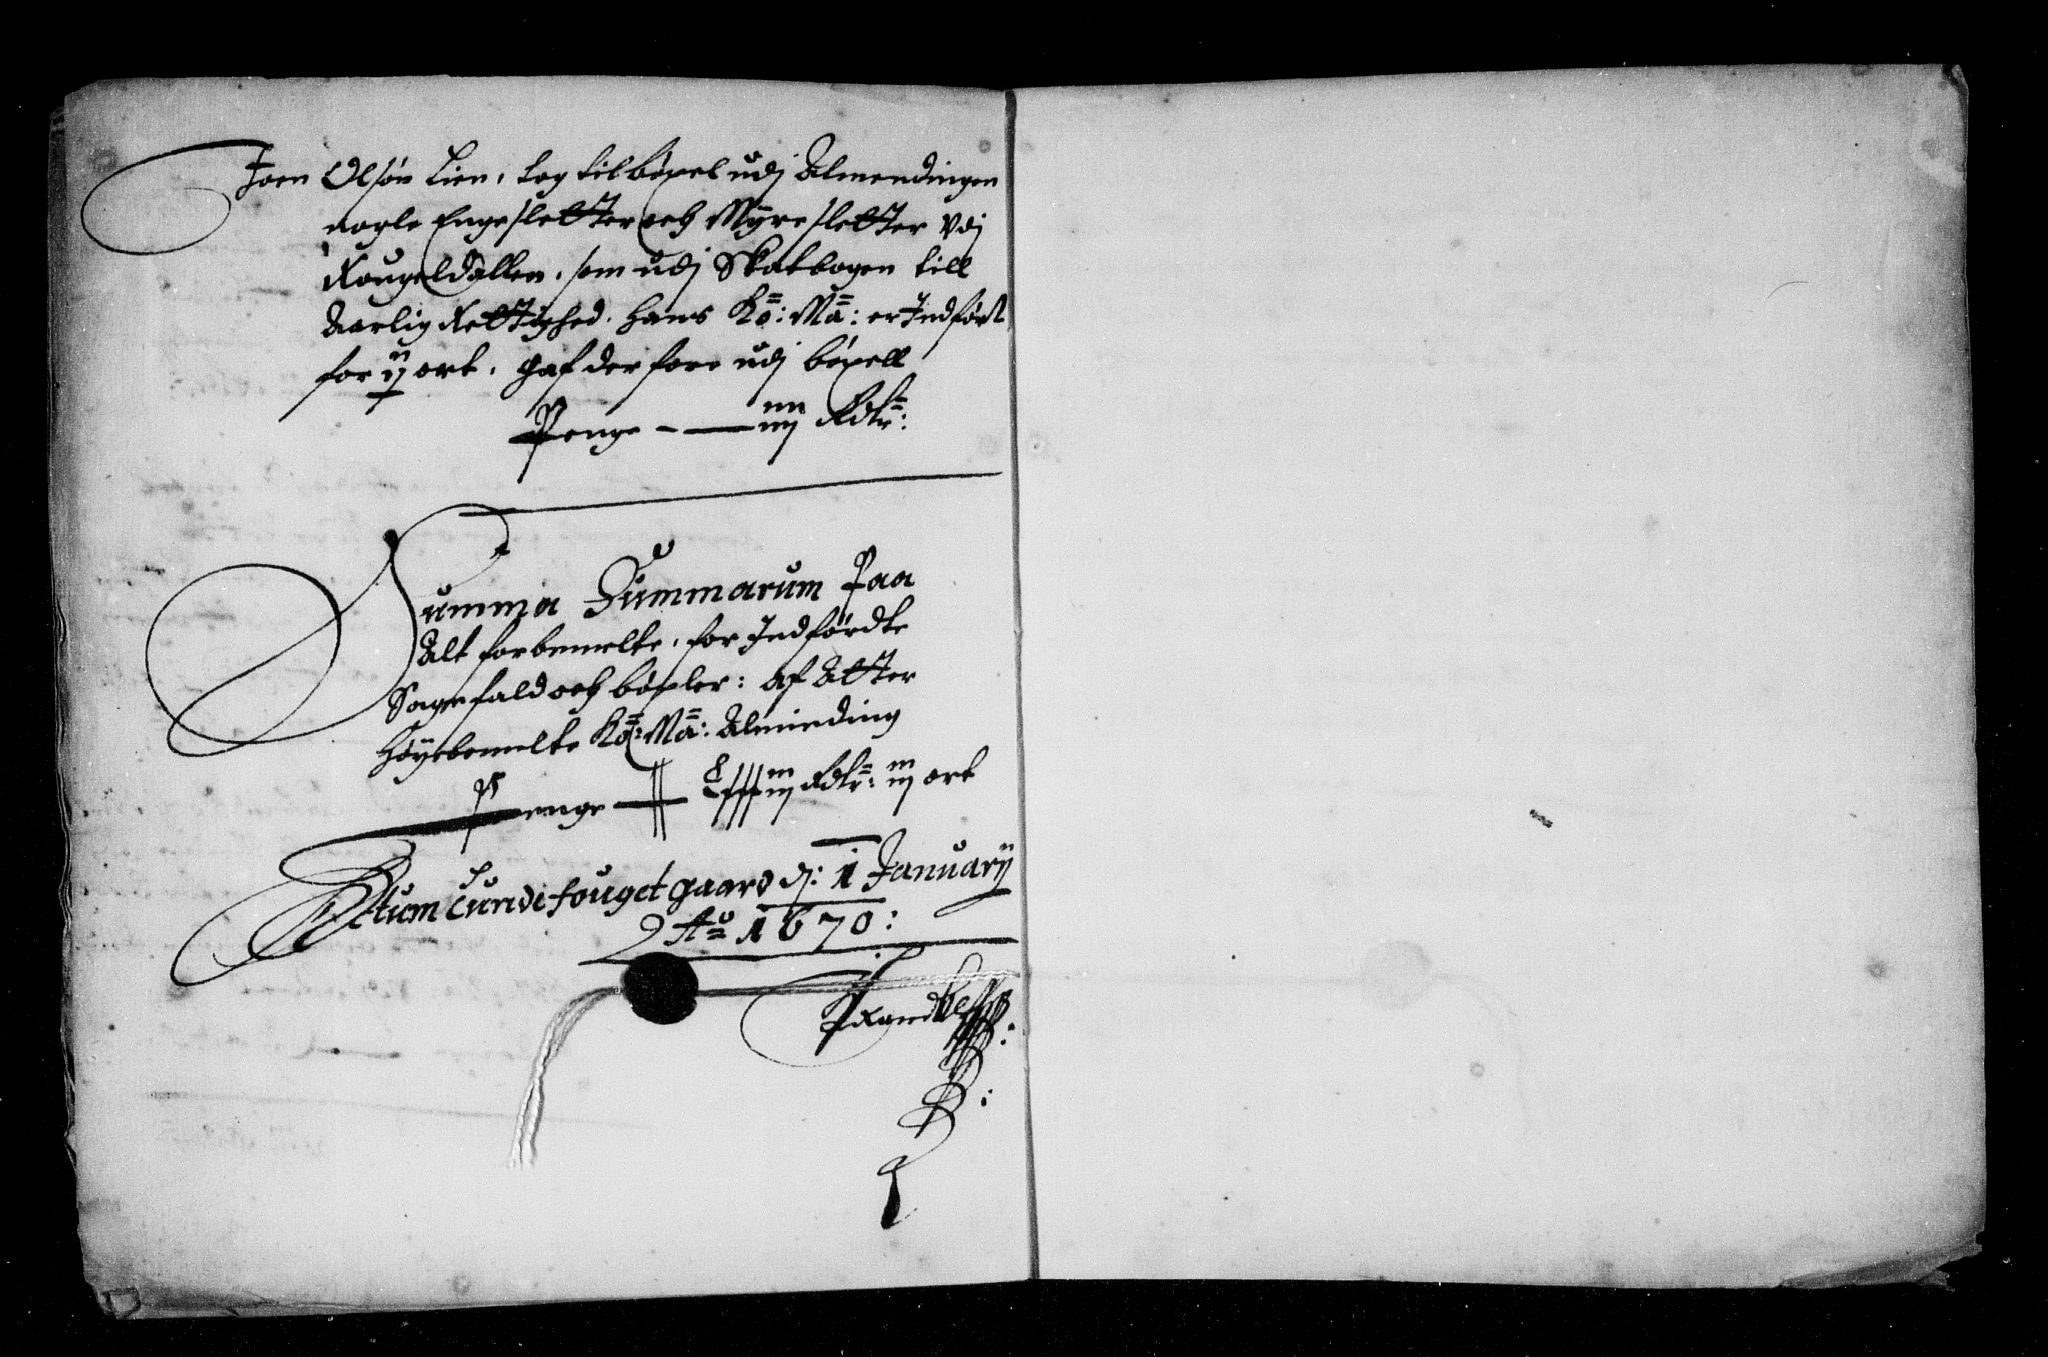 Joen Olsøn Lien, tog til bøxel udj Almendingen
nogle Engesletter och Myresletter vdj
Rougeldallen, som udj Skatbogen till
Aarlig Rettighed. hans Ko: Ma: er Indført
for ij ort, gaf der fore udj bøxell
Penge - — iiij Rdlr:
Summa Summarum Paa
Alt forbemelte, for Indførdte
Sagefald och bøxler: af Atter
Høyebemelte Ko: Ma: Alminding
Penge — Rdlr: iij ort
Actum Lunde fouget gaard dj: 1 January
Ao 1670: